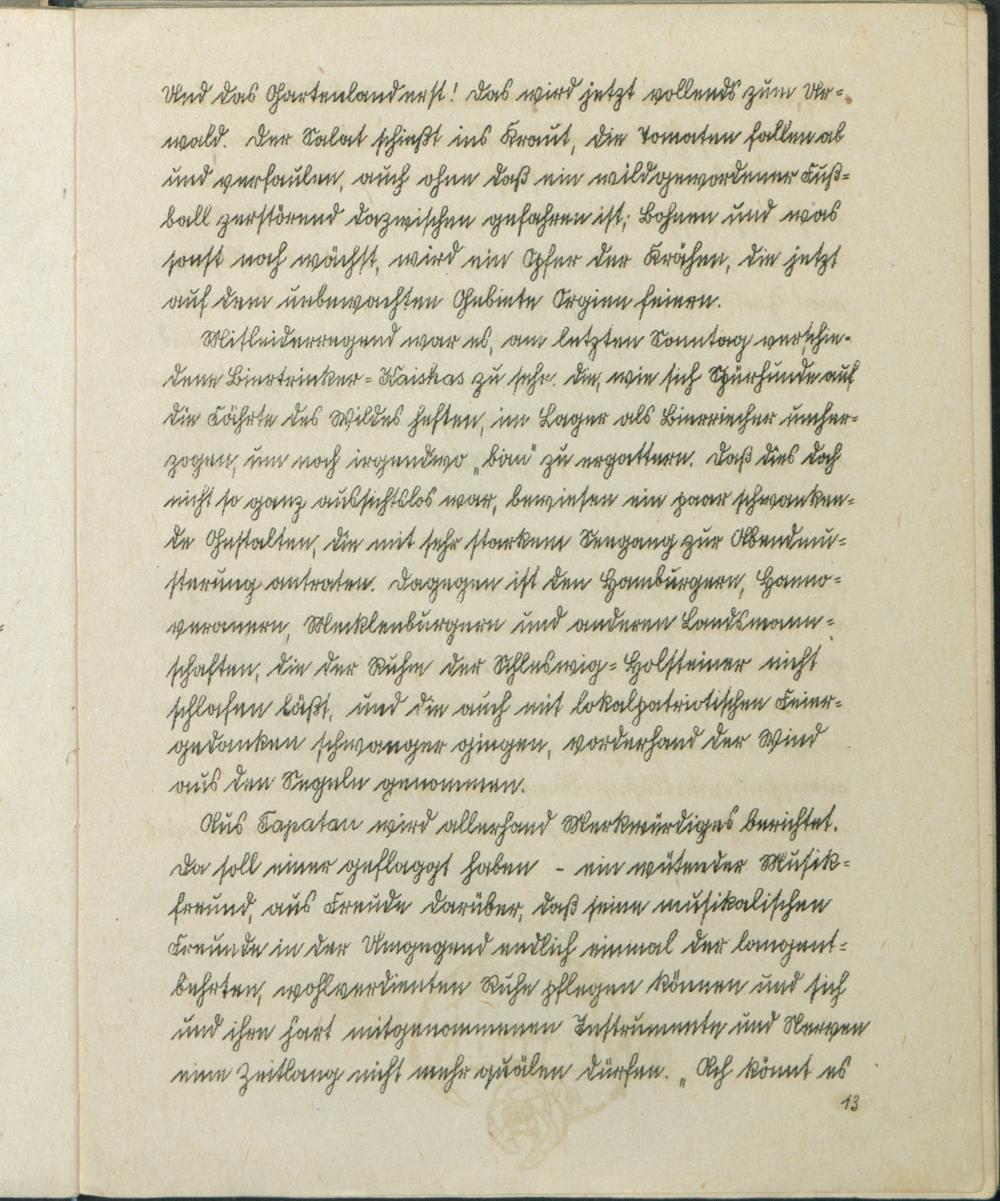 Und das Gartenland erst! Das wird jetzt vollends zum Ur=
wald. Der Salat schießt ins Kraut, die Tomaten fallen ab
und verfaulen, auch ohne daß ein wildgewordener Fuß=
ball zerstörend dazwischen gefahren ist; Bohnen und was
sonst noch wächst, wird ein Opfer der Krähen, die jetzt
auf dem unbewachten Gebiete Orgien feiern.
Mitleiderregend war es, am letzten Sonntag verschie-
dene Biertrinker=Kaishas zu sehr. die, wie sich Spürhunde auf
die Fährte des Wildes heften, im Lager als Bierriecher umher-
zogen, um noch irgendwo „bau" zu ergattern. Daß dies doch
nicht so ganz aussichtslos war, bewiesen ein paar schwanken-
de Gestalten, die mit sehr starkem Seegang zur Abendmu=
sterung antraten. Dagegen ist den Hamburgern, Hanno=
veranern, Mecklenburgern und anderen Landsmann=
schaften, die der Ruhm der Schleswig=Holsteiner nicht
schlafen läßt, und die auch mit lokalpatriotischen Feier=
gedanken schwanger gingen, vorderhand der Wind
aus den Segeln genommen.
Aus Tapatau wird allerhand Merkwürdiges berichtet.
Da soll einer geflaggt haben - ein wütender Musik=
freund, aus Freude darüber, daß seine musikalischen
Freunde in der Umgegend endlich einmal der langent=
behrten, wohlverdienten Ruhe pflegen können und sich
und ihre hart mitgenommenen Instrumente und Nerven
eine Zeitlang nicht mehr quälen dürfen. „Ach könnt es
13